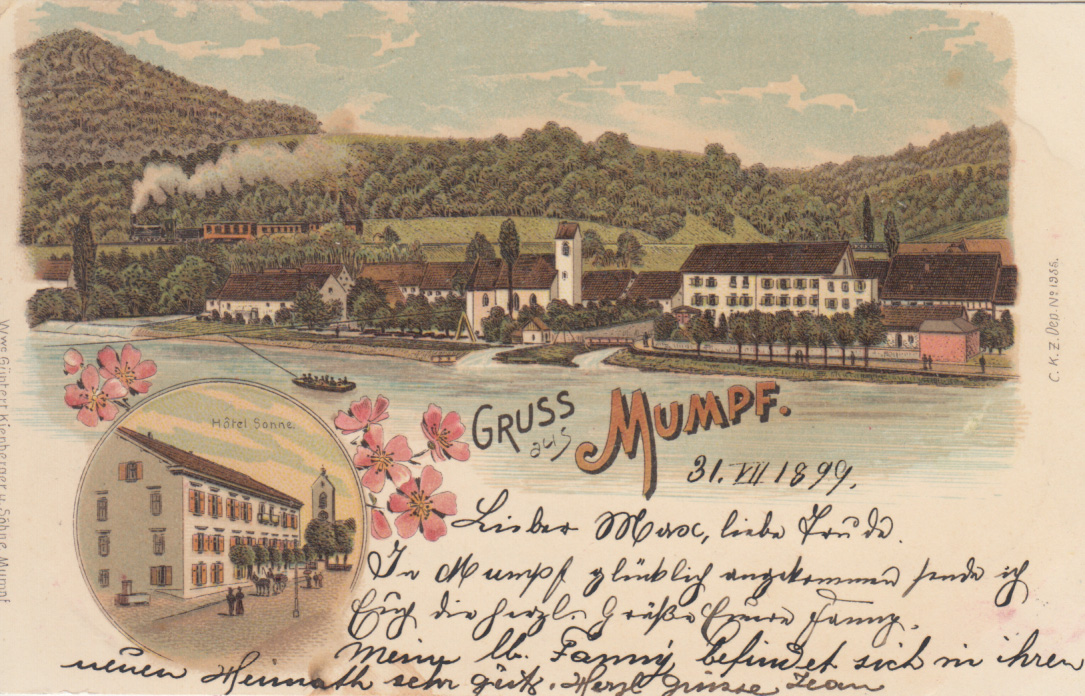 Hôtel Sonne.
GRUSS
aus
MUMPF.
31. VII 1899.
Lieber Max, liebe Trude.
In Mumpf glücklich angekommen sende ich
Euch die herzl. Grüße Eure Fanny.
Meine lb. Fanny befindet sich in ihren
neuen Heimath sehr gut. Herzl Grüsse Jean
C. K. Z. Dep. No 1935.
Wwe Güntert Kienberger u. Söhne, Mumpf